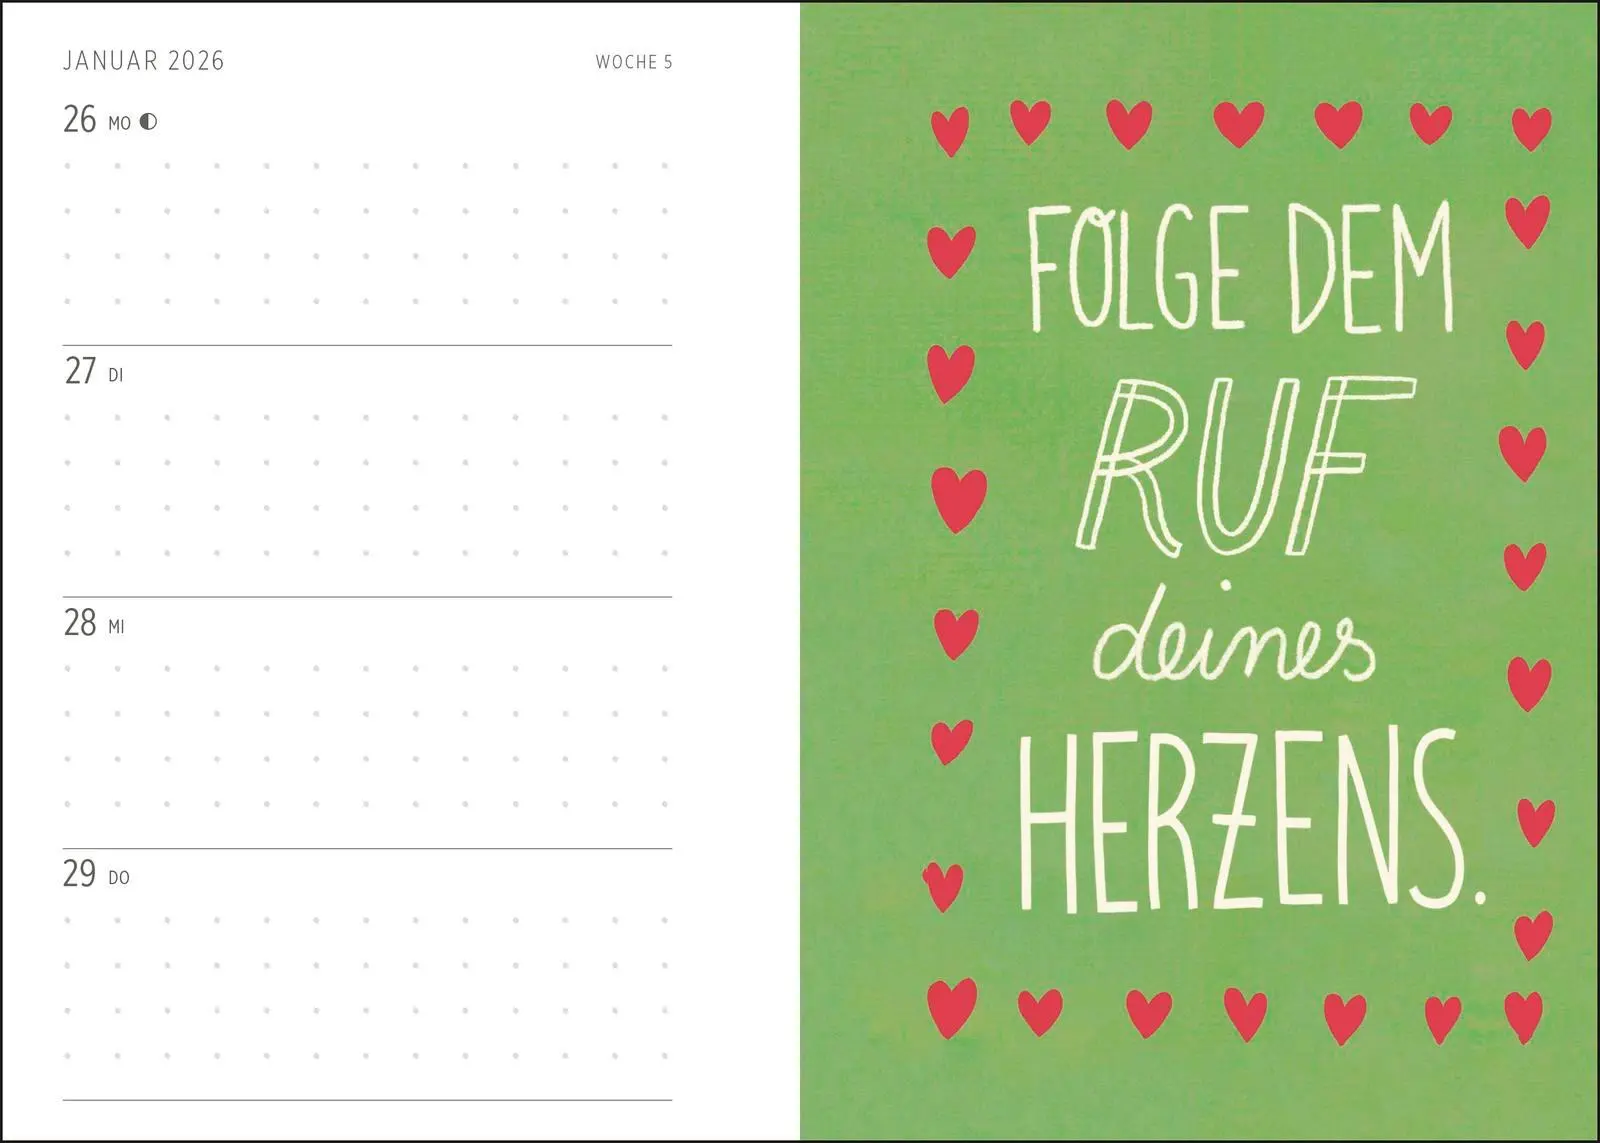 JANUAR 2026
WOCHE 5
26 MO
27 DI
28 MI
29 DO
FOLGE DEM
RUF
deines
HERZENS.